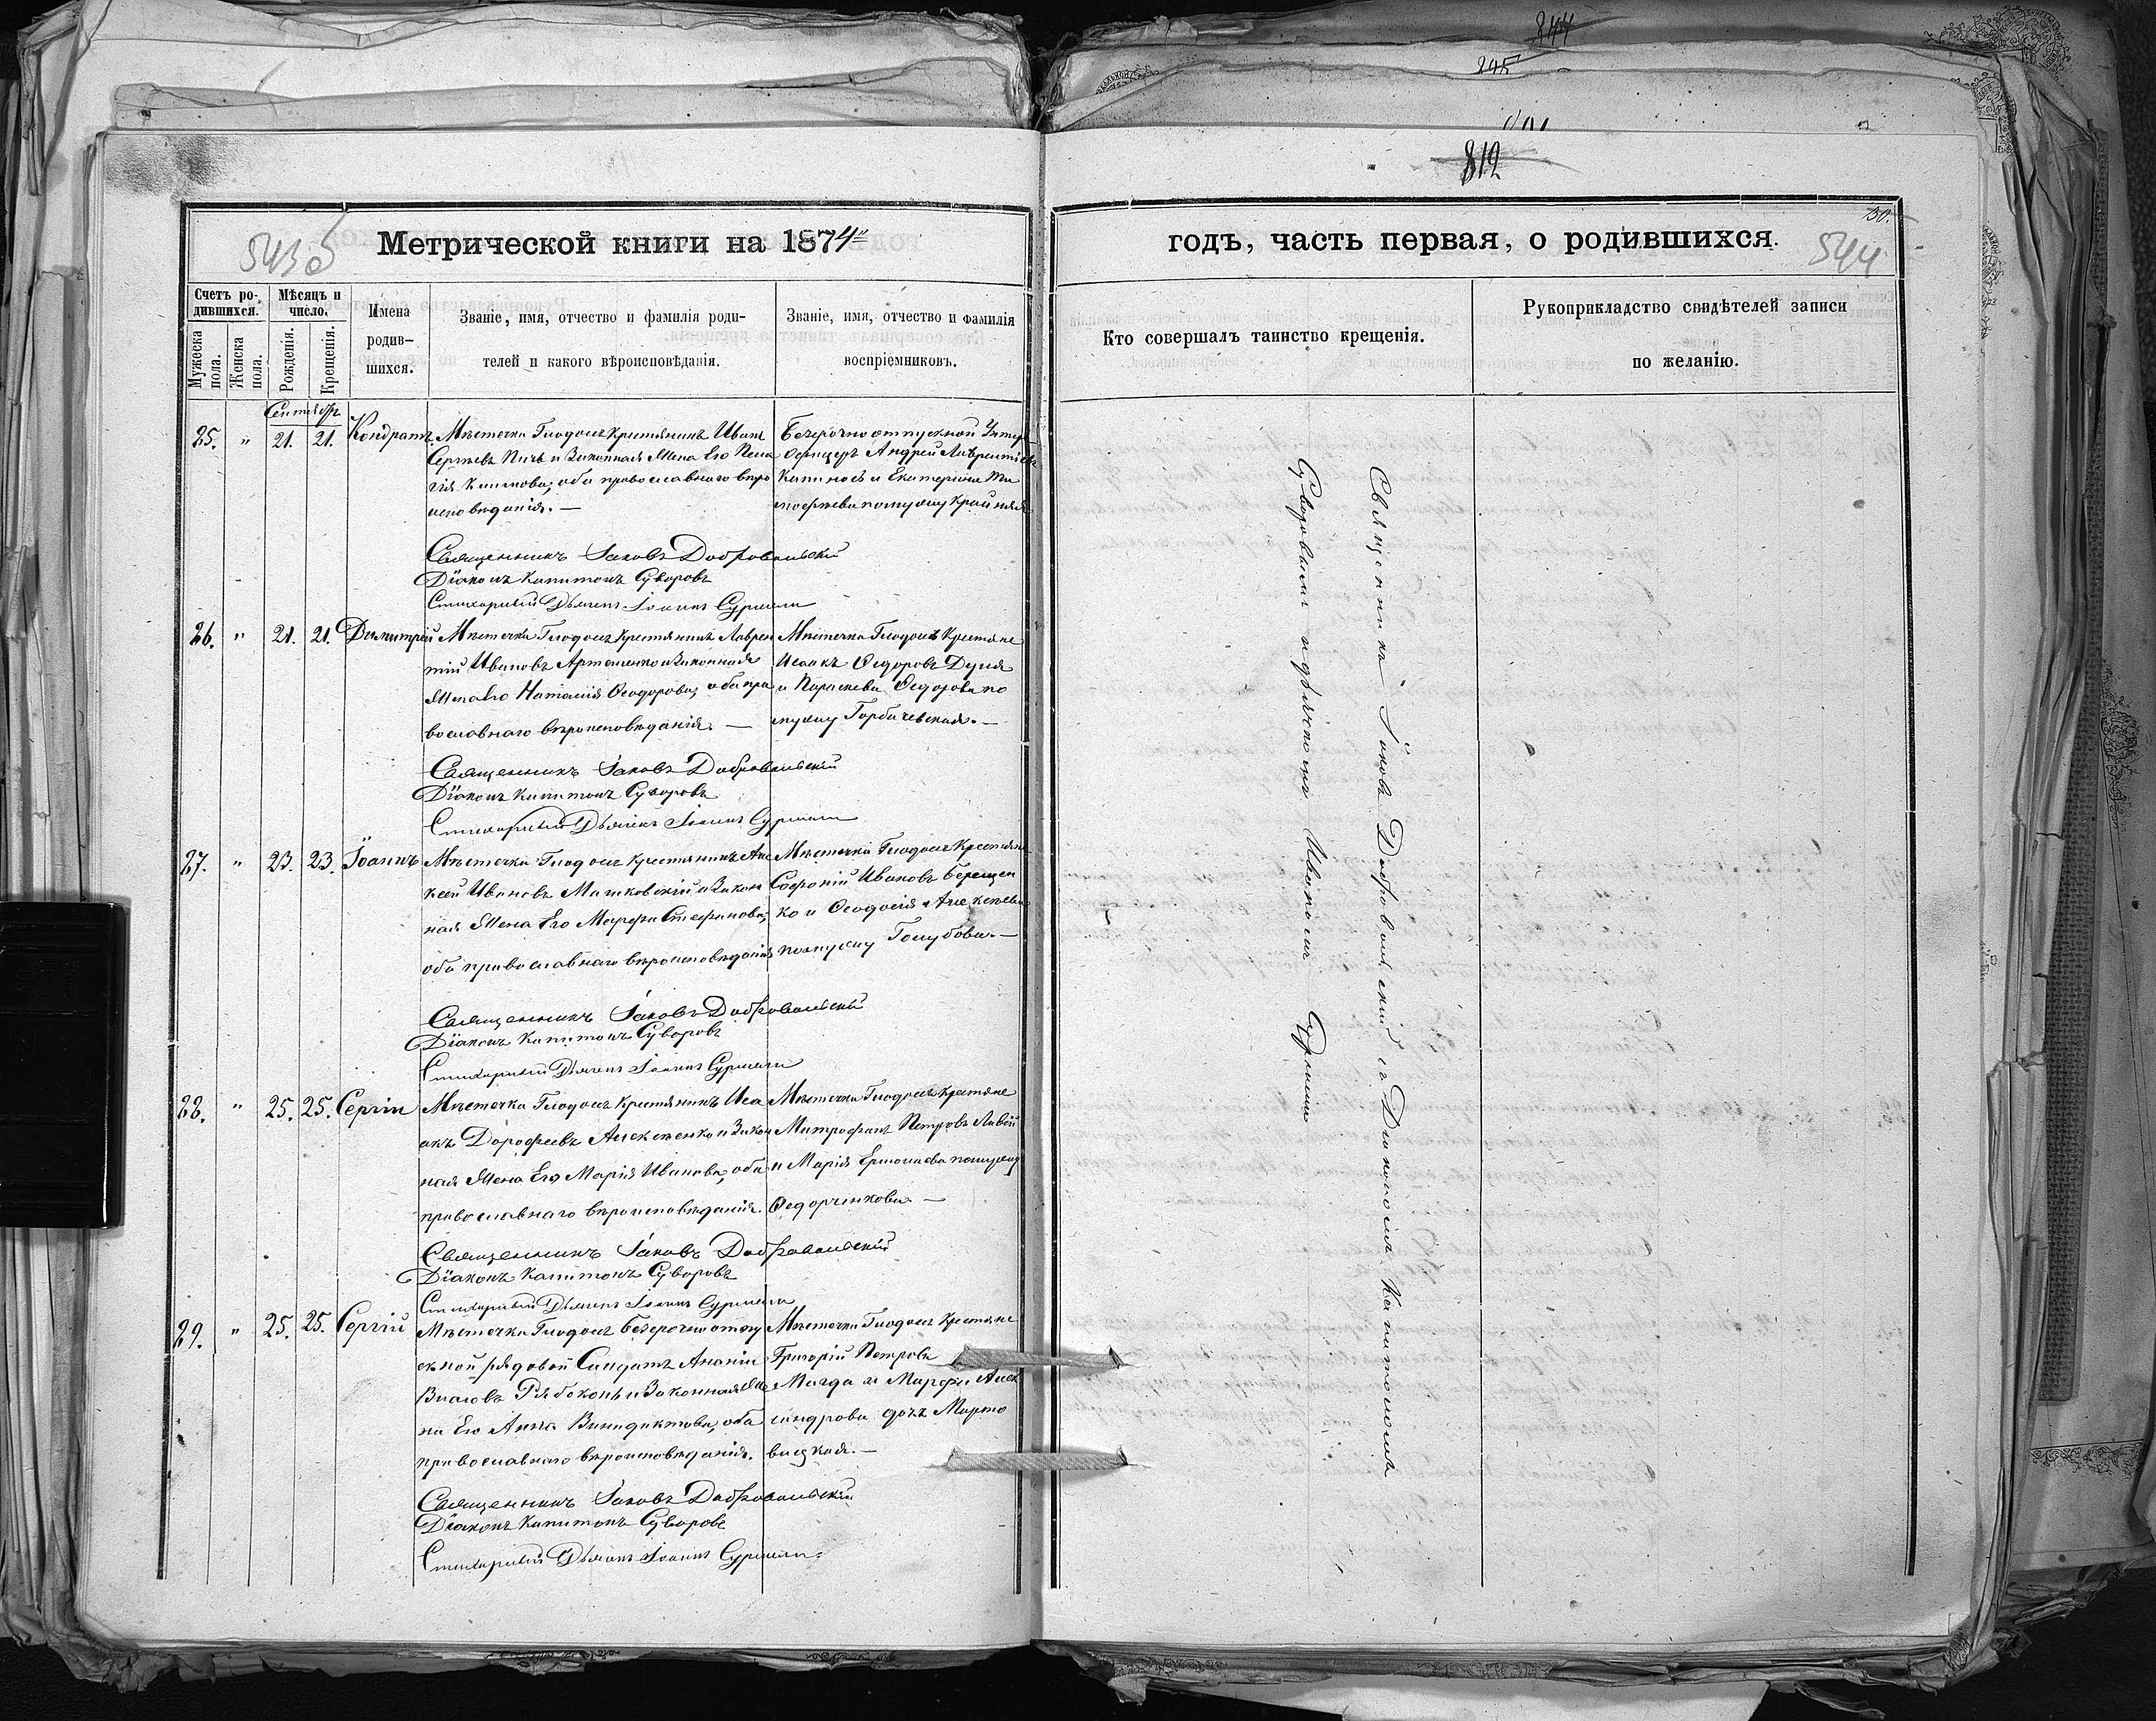 844
295
812
50.
543 б
Метрической книги на 1874
годъ, часть первая, о родившихся.
544
Счетъ ро-
дившихся.
Мужеска
пола.
Женска
пола.
Мѣсяцъ и
число.
Рожденія.
Крещенія.
Имена
родив-
шихся.
Званіе, имя, отчество и фамилія роди-
телей и какого вѣроисповѣданія.
Званіе, имя, отчество и фамилія
воспріемниковъ.
Кто совершалъ таинство крещенія.
Рукоприкладство свидѣтелей записи
по желанію.
Сентябрь
25. " 21. 21. Кондратъ
Мѣстечка Глодосъ Крестьянинъ Иванъ
Сергѣевъ и Законная Жена Его Пела
гія Климова, оба православнаго вѣро
исповѣданія. —
Безсрочно отпускной Унтеръ
Офицеръ Андрей Лаврентіевъ
и Екатерина Ти
моѳеева по мужу
Священникъ Іаковъ Добровольскій
Діаконъ Капитонъ Суворовъ
Стихарный Дьячекъ Іоаннъ
26. " 21. 21. Димитрій
Мѣстечка Глодосъ Крестьянинъ Лаврен
тій Ивановъ Артеменко и Законная
Жена Его Наталія Ѳеодорова, оба пра
вославнаго вѣроисповѣданія. —
Мѣстечка Глодосъ Крестьяне
Исаакъ Ѳедоровъ
и Параскева Ѳедорова по
мужу Горбачевская. —
Священникъ Іаковъ Добровольскій
Діаконъ Капитонъ Суворовъ
Стихарный Дьячекъ Іоаннъ
27. " 23. 23. Іоаннъ
Мѣстечка Глодосъ Крестьянинъ Але
ксей Ивановъ Машковскій и Закон
ная Жена Его Марфа Стефанова,
оба православнаго вѣроисповѣданія
Мѣстечка Глодосъ Крестьяне
Софроній Ивановъ Берещен
ко и Ѳеодосія Алексѣева
по мужу Голубова. —
Священникъ Іаковъ Добровольскій
Діаконъ Капитонъ Суворовъ
Стихарный Дьячекъ Іоаннъ
28. " 25. 25. Сергій
Мѣстечка Глодосъ Крестьянинъ Иса
акъ Дорофеевъ Алексѣенко и Закон
ная Жена Его Марія Иванова, оба
православнаго вѣроисповѣданія.
Мѣстечка Глодосъ Крестьяне
Митрофанъ Петровъ
и Марія Ермолаева по мужу
Ѳедорченкова —
Священникъ Іаковъ Добровольскій
Діаконъ Капитонъ Суворовъ
Стихарный Дьячекъ Іоаннъ
29. " 25. 25. Сергій
Мѣстечка Глодосъ Безсрочно отпу
скной рядовой Солдатъ Ананій
Власовъ Рябоконь и Законная Же
на Его Анна Винидиктова, оба
православнаго вѣроисповѣданія.
Мѣстечка Глодосъ Крестьяне
Григорій Петровъ
и Марфа Алек
сандрова дочь Марто
вицкая. —
Священникъ Іаковъ Добровольскій
Діаконъ Капитонъ Суворовъ
Стихарный Дьячекъ Іоаннъ
Священникъ Іаковъ Добровольскій съ Діакономъ Капитономъ
Суворовымъ и дьячкомъ Иваномъ